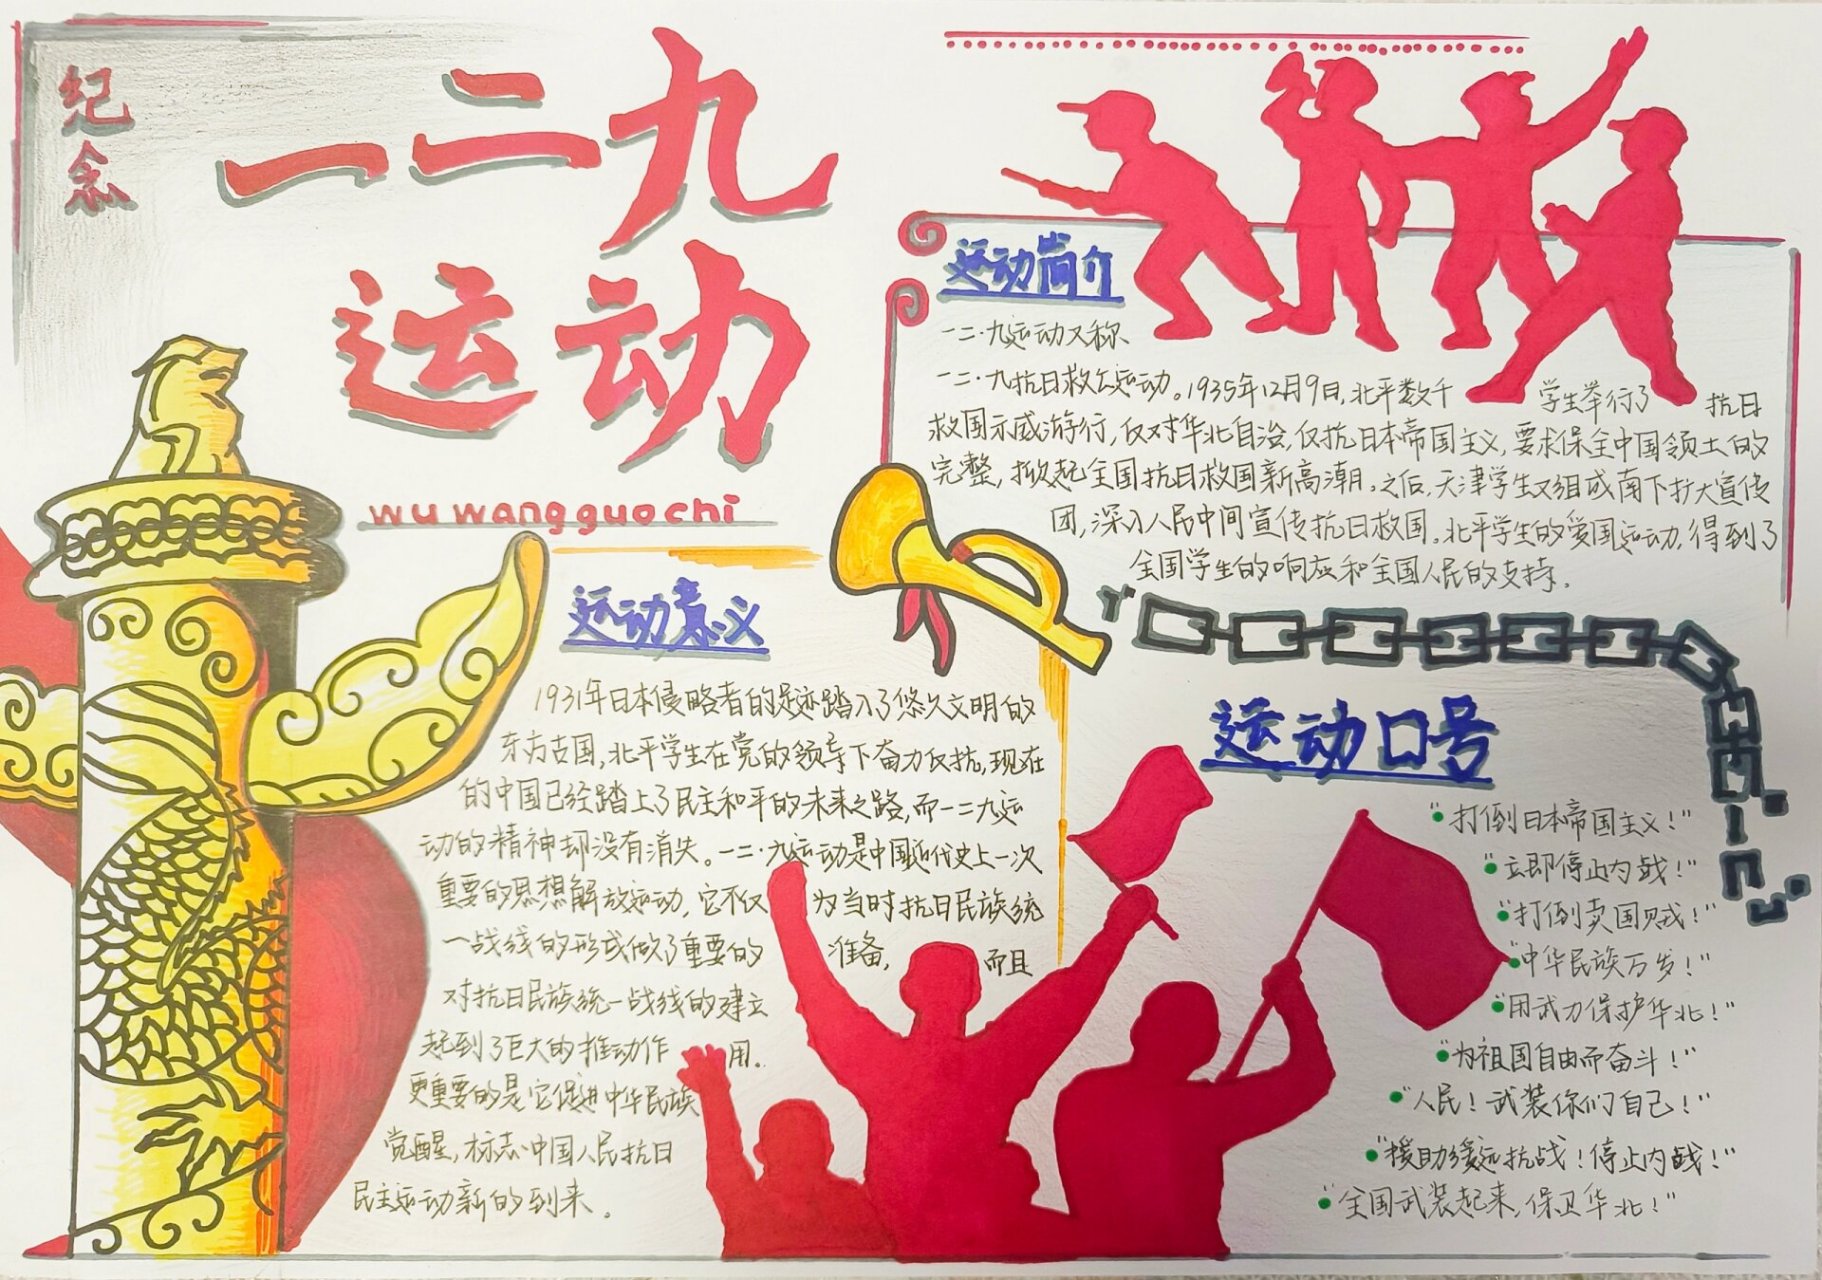 纪念
一二九
运动
wu wang guo chi
运动简介
一二·九运动又称
一二·九抗日救亡运动。1935年12月9日,北平数千学生举行了抗日
救国示威游行,反对华北自治,反抗日本帝国主义,要求保全中国领土的
完整,掀起全国抗日救国新高潮。之后,天津学生又组成南下扩大宣传
团,深入人民中间宣传抗日救国。北平学生的爱国运动,得到了
全国学生的响应和全国人民的支持。
运动意义
1931年日本侵略者的足迹踏入了悠久文明的
东方古国,北平学生在党的领导下奋力反抗,现在
的中国已经踏上了民主和平的未来之路,而一二九运
动的精神却没有消失。一二·九运动是中国近代史上一次
重要的思想解放运动,它不仅为当时抗日民族统
一战线的形成做了重要的准备,而且
对抗日民族统一战线的建立
起到了巨大的推动作用。
更重要的是它促进中华民族
觉醒,标志中国人民抗日
民主运动新的到来。
运动口号
“打倒日本帝国主义!”
“立即停止内战!”
“打倒卖国贼!”
“中华民族万岁!”
“用武力保护华北!”
“为祖国自由而奋斗!”
“人民!武装你们自己!”
“援助绥远抗战!停止内战!”
“全国武装起来,保卫华北!”